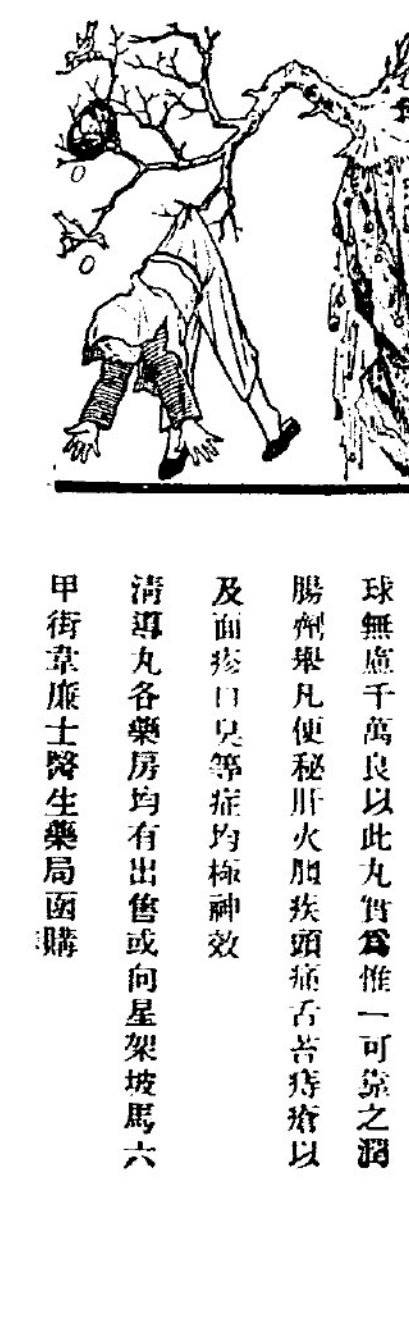 球無慮千萬良以此丸實爲惟一可靠之潤
腸劑舉凡便秘肝火胆疾頭痛舌苔痔瘡以
及面疹口臭等症均極神效
清導丸各藥房均有出售或向星架坡馬六
甲街韋廉士醫生藥局函購